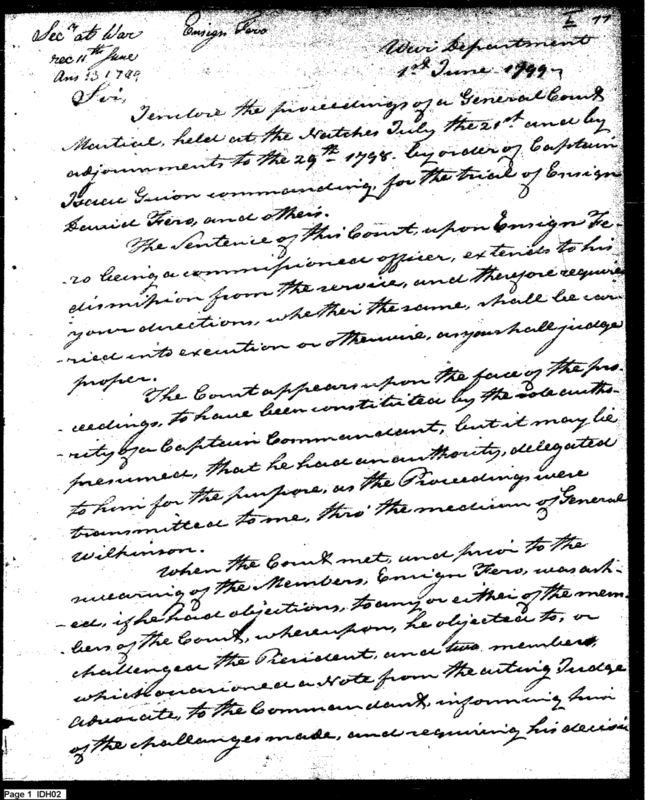 Secy at War
rec 11th June
Ans 13 1799
Ensign Fero
I 77
War Department
1st June 1799
Sir,
I enclose the proceedings of a General Court
Martial, held at the Natches July the 21st and by
adjournments to the 29th 1798. by order of Captain
Isaac Guion commanding, for the trial of Ensign
David Fero, and others.
The Sentence of this Court, upon Ensign Fe-
-ro being a commissioned officer, extends to his
dismission from the service, and therefore requires
your directions, whether the same, shall be car-
-ried into execution or otherwise, as you shall judge
proper.
The Court appears upon the face of the pro-
-ceedings, to have been constituted by the sole autho-
-rity of a Captain Commandant, but it may be
presumed, that he had an authority, delegated
to him for the purpose, as the Proceedings were
transmitted to me, thro' the medium of General
Wilkinson.
When the Court met, and prior to the
swearing of the Members, Ensign Fero, was ask-
-ed, if he had objections, to any or either of the mem-
-bers of the Court, whereupon, he objected to, or
challenged the President, and two members,
which occasioned a Note from the acting Judge
advocate, to the Commandant, informing him
of the challanges made, and requiring his decisio
Page 1 IDH02